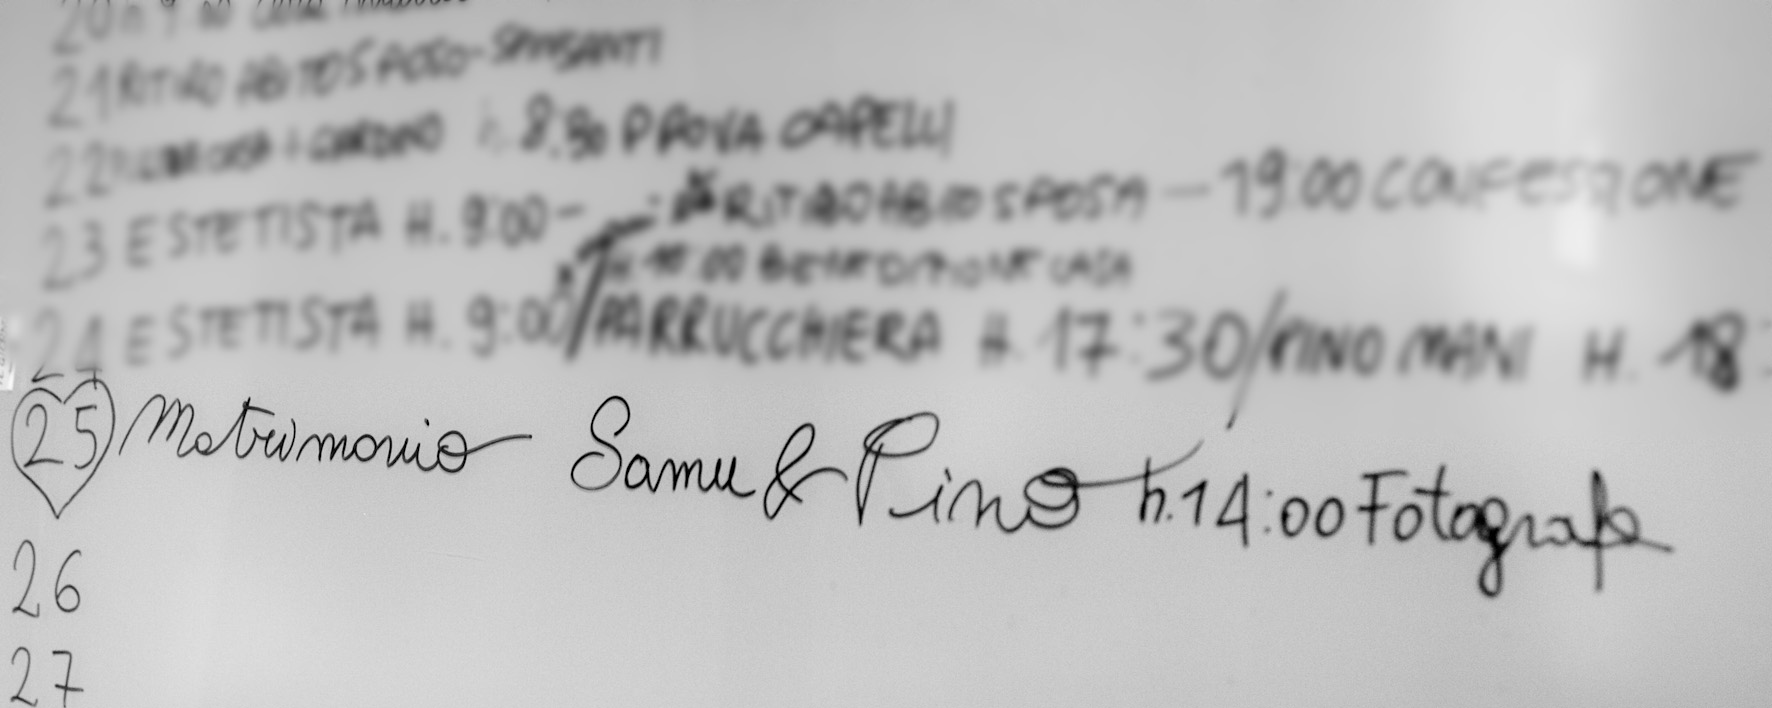 21 RITIRO ABITO SPOSO-
22 h. 8.30 PROVA CAPELLI
23 ESTETISTA H. 9:00 - RITIRO ABITO SPOSA - 19:00 CONFESSIONE
BENEDIZIONE CASA
24 ESTETISTA H. 9:00/PARRUCCHIERA H. 17:30/PINO MANI H. 18:
25 Matrimonio Samu & Pino h.14:00 Fotografo
26
27